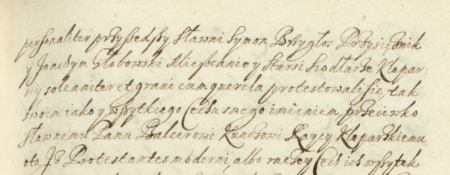 personaliter przyszedszy Sławni Symon Przygłos Przysiężnik
y Joachym Głobowski Mieszczanie y Starsi Siodlarze Klepar-
scy solenniter et gravi cum querela protestowali się tak
swoim iako y wszytkiego Cechu swego imieniem przeciwko
Sławnemu Panu Balcerowi Raycy Kleparskiemu
oto Jż Protestantes moderni, albo raczey Cech ich wszytek